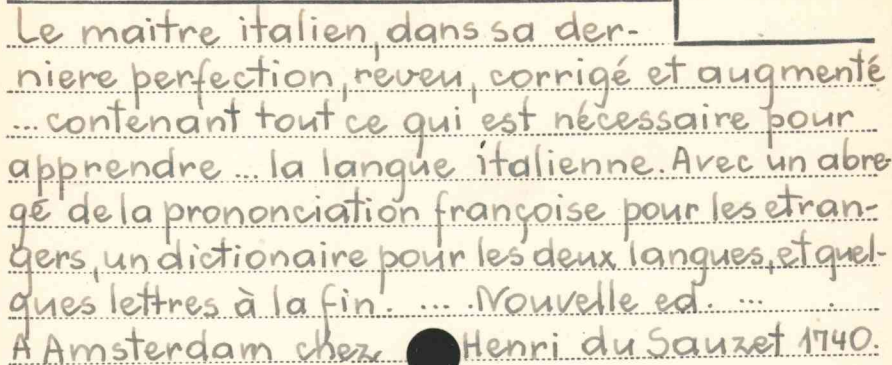 Le maitre italien, dans sa der-
niere perfection, reveu, corrigé et augmenté
... contenant tout ce qui est nécessaire pour
apprendre ... la langue italienne. Avec un abre-
gé de la prononciation françoise pour les etran-
gers, un dictionaire pour les deux langues, et quel-
ques lettres à la fin. ... . Nouvelle ed. ... .
A Amsterdam chez Henri du Sauzet 1740.